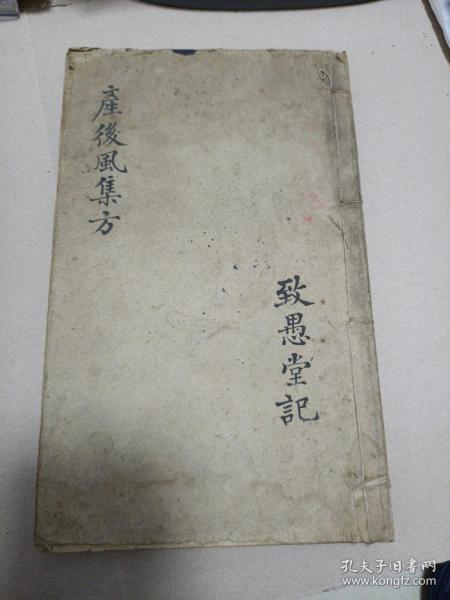 產後風集方
致愚堂記
孔夫子旧书网
www.kongfz.com